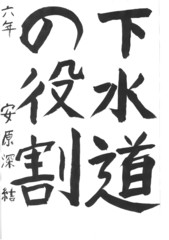 下水道
の役割
六年 安原深結